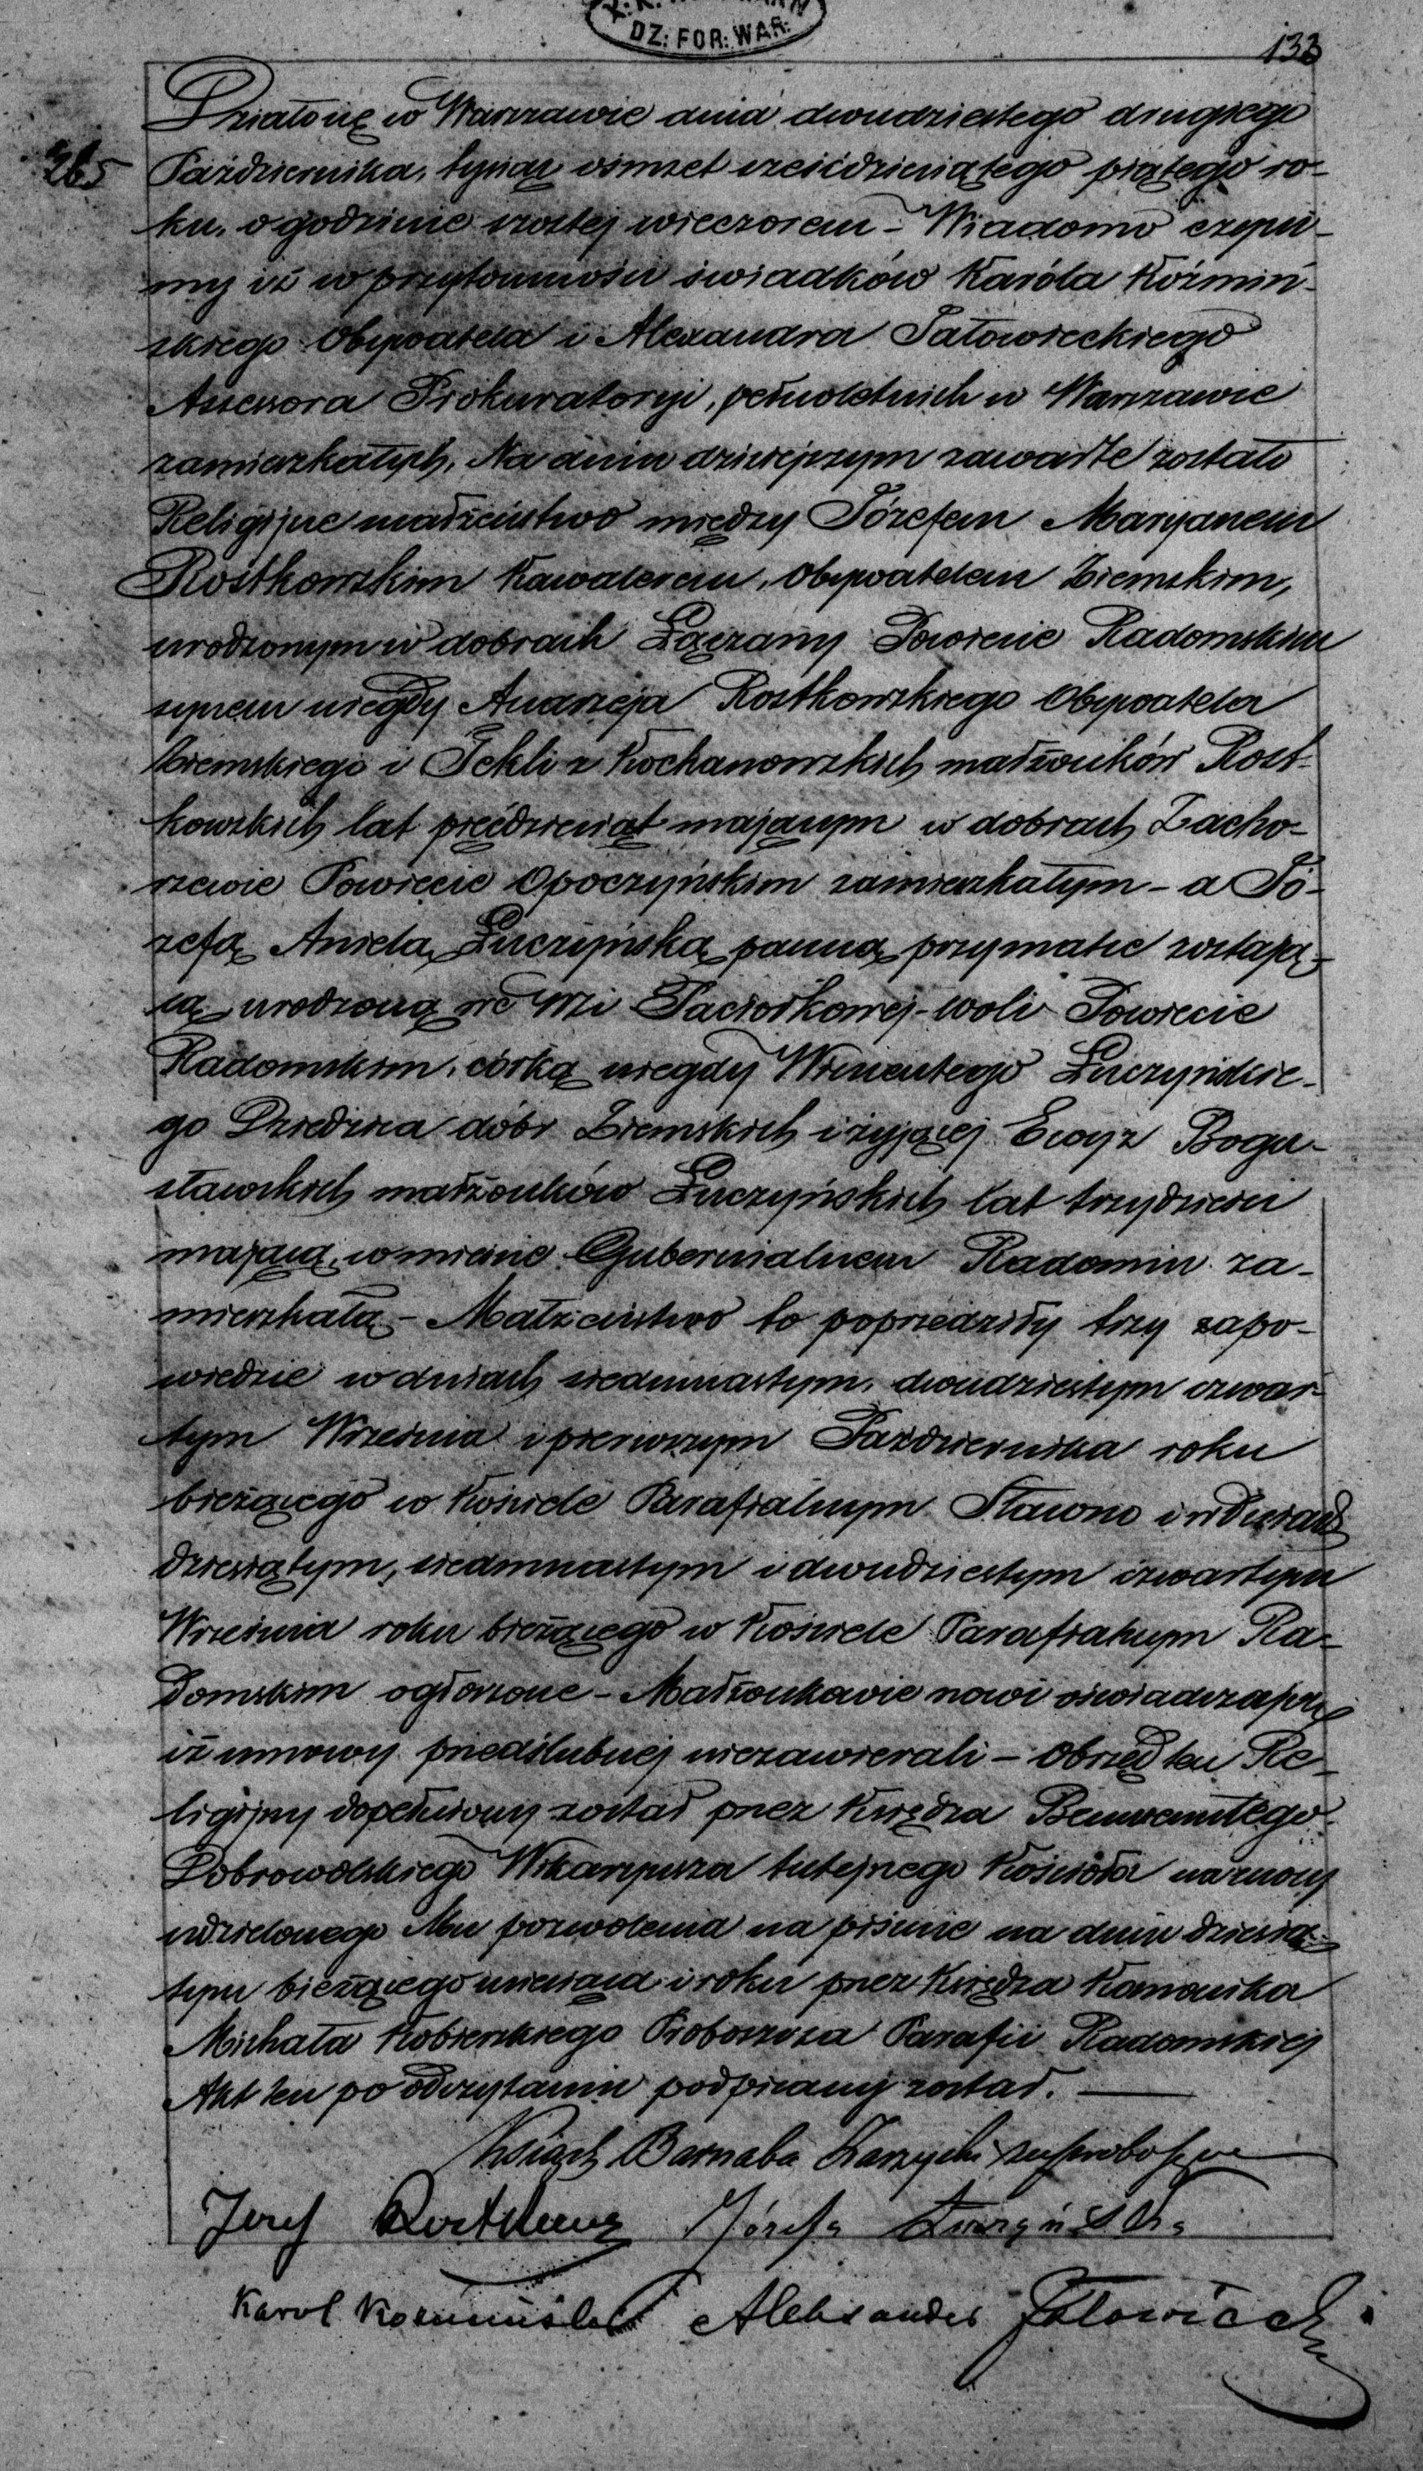 DZ: FOR: WAR:
133
Działo się w Warszawie dnia dwudziestego drugiego
265
Października, tysiąc ośmset sześćdziesiątego piątego ro-
ku, o godzinie szostej wieczorem - Wiadomo czyni-
my iż w przytomności świadków Karola Koźmiń-
skiego Obywatela i Alexandra Jałowieckiego
Assessora Prokuratoryi, pełnoletnich w Warszawie
zamieszkałych, Na dniu dzisiejszym zawarte zostało
Religijne małżeństwo między Józefem Maryanem
Rostkowskim Kawalerem, Obywatelem Ziemskim,
urodzonym w dobrach Łączany Powiecie Radomskim
synem niegdy Andrzeja Rostkowskiego Obywatela
Ziemskiego i Tekli z Kochanowskich małżonków Rost-
kowskich lat pięćdziesiąt mającym w dobrach Zacho-
rzewie Powiecie Opoczyńskim zamieszkałym - a Jó-
zefą Anielą Łuczyńską panną przymatce zostają-
cą urodzoną we Wsi Paciorkowej-woli Powiecie
Radomskim, córką niegdy Wincentego Łuczyńskie-
go Dziedzica dóbr Ziemskich i żyjącej Ewy z Bogu-
sławskich małżonków Łuczyńskich lat trzydzieści
mającą, w mieście Gubernialnem Radomiu za-
mieszkałą - Małżeństwo to poprzedziły trzy zapo-
wiedzie w dniach siedmnastym, dwudziestym czwar-
tym Września i pierwszym Października roku
bieżącego w Kościele Parafialnym Sławno i w Dniach
dziesiątym, siedmnastym i dwudziestym czwartym
Września roku bieżącego w Kościele Parafialnym Ra-
domskim ogłoszone - Małżonkowie nowi oświadczają
iż umowy przedślubnej niezawierali - Obrzęd ten Re-
ligijny dopełniony został przez Księdza Benwenutego
Dobrowolskiego Wikaryusza tutejszego Kościoła na mocy
udzielonego Mu pozwolenia na piśmie na dniu dziesią-
tym bieżącego miesiąca i roku przez Księdza Kanonika
Michała Kobierskiego Proboszcza Parafii Radomskiej
Akt ten po odczytaniu podpisany został.
Ksiądz Barnaba Zarzycki
Józef Rostkowski Józefa Łuczyńska
Karol Kozmiński Aleksander Jałowiecki